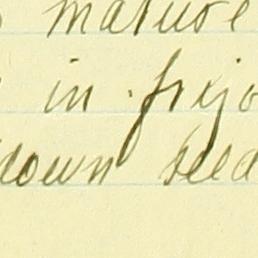 mature
in frijo
down seed